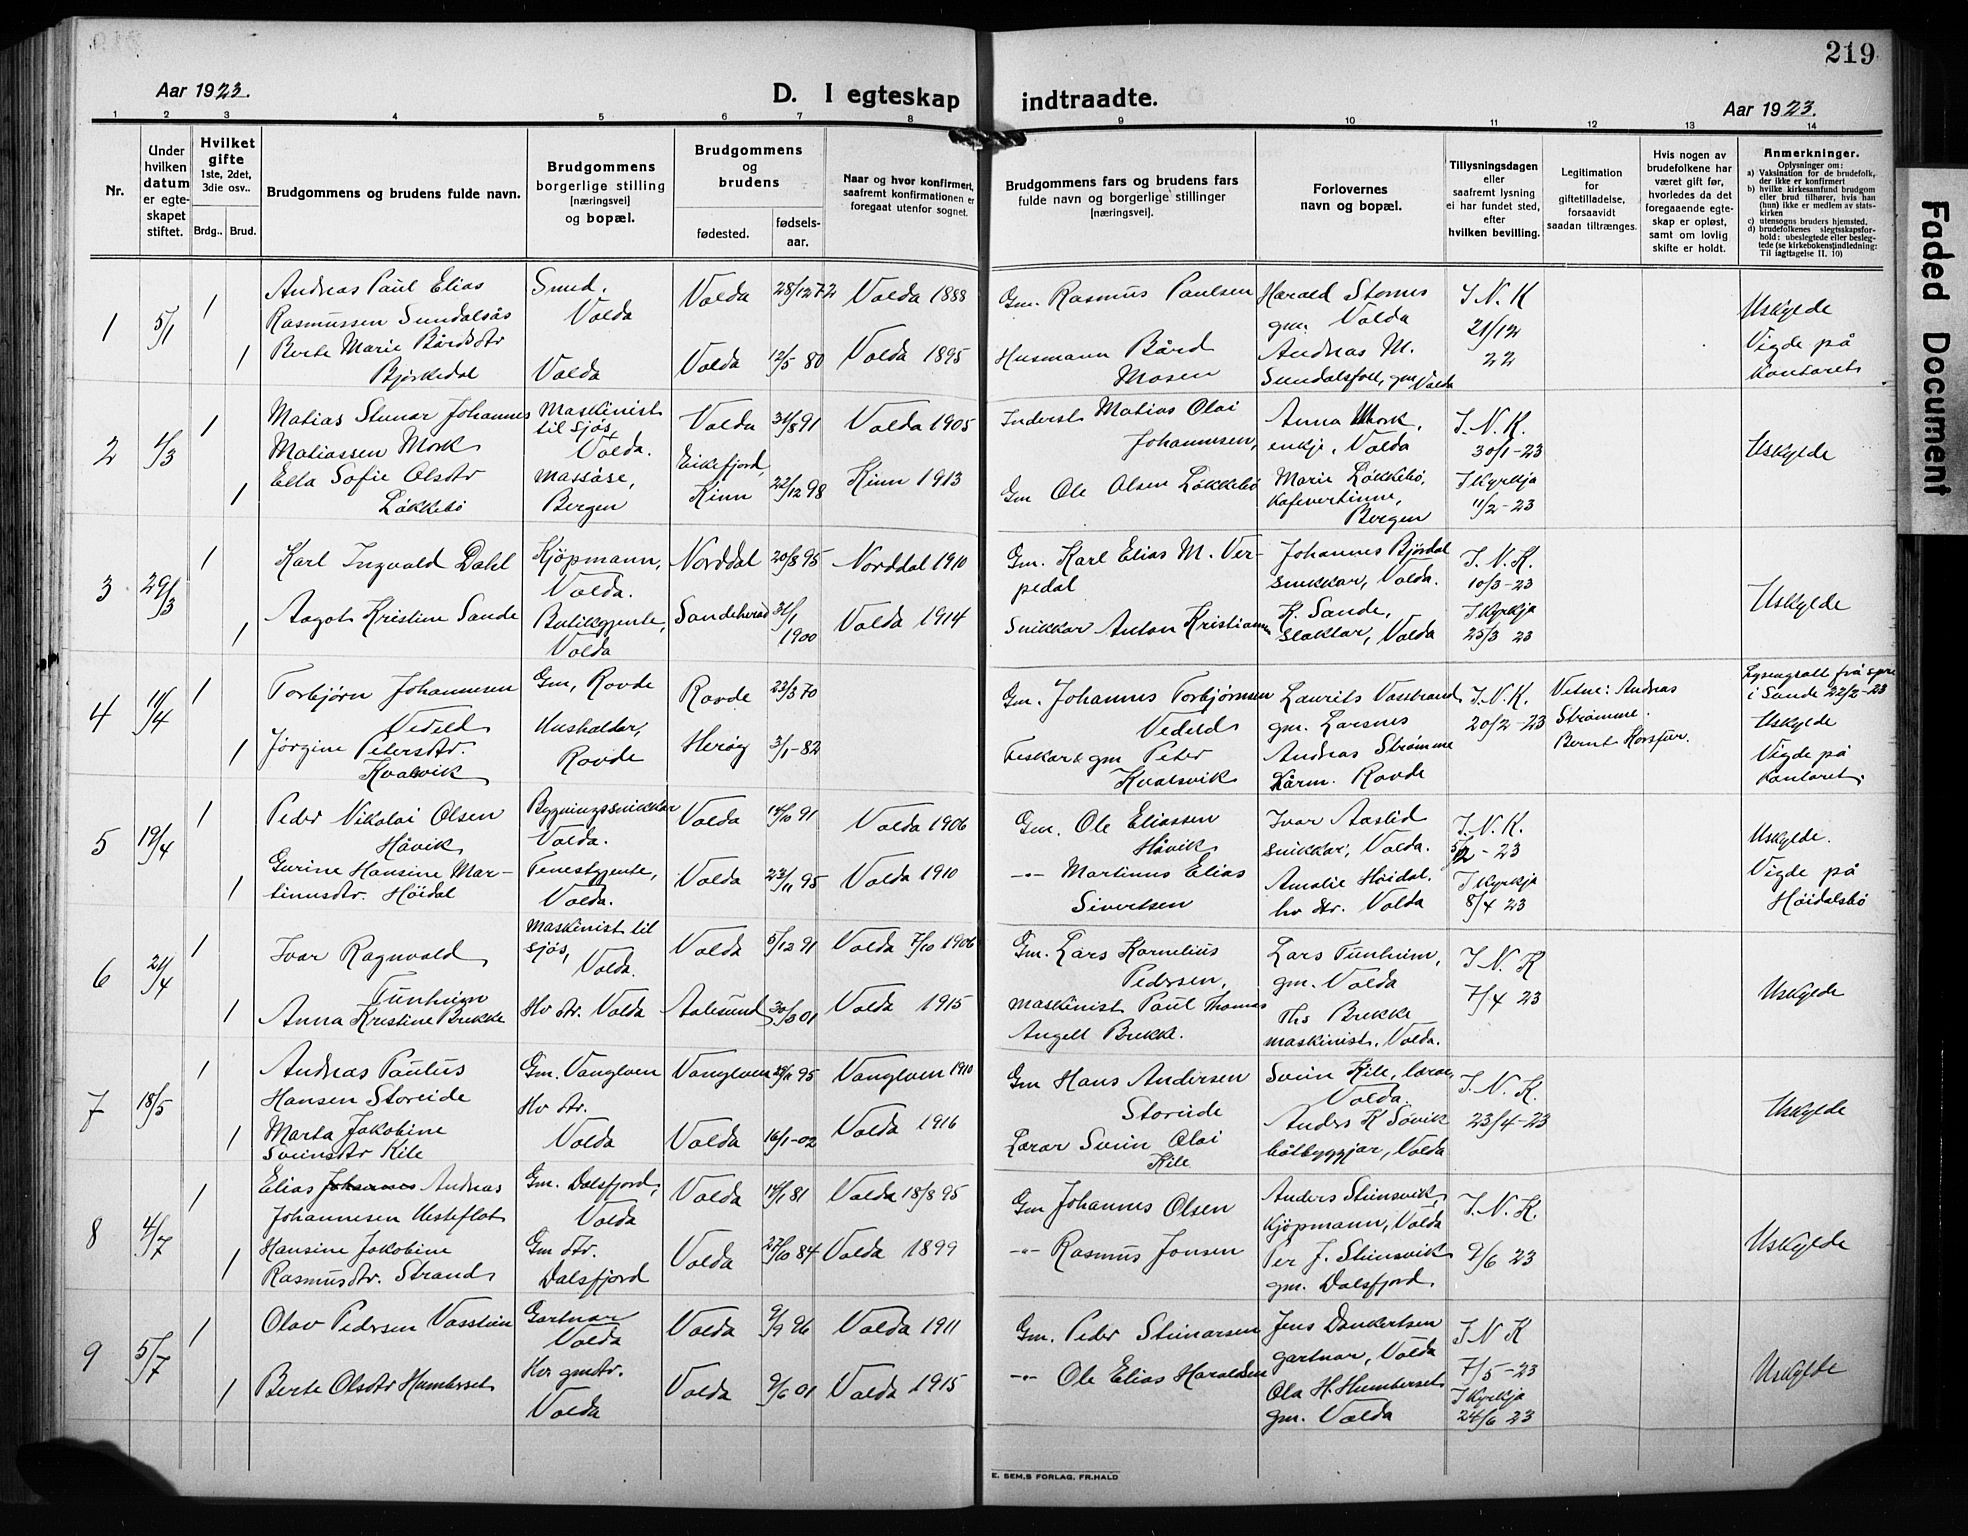 219
Aar 1923.
D. I egteskap indtraadte.
Aar 1923.
1 2 3 4 5 6 7 8 9 10 11 12 13 14
Nr.
Under hvilken datum er egteskapet stiftet.
Hvilket gifte
1ste, 2det, 3die osv..
Brdg.. Brud.
Brudgommens og brudens fulde navn.
Brudgommens borgerlige stilling [næringsvei] og bopæl.
Brudgommens og brudens
fødested.
fødselsaar.
Naar og hvor konfirmert, saafremt konfirmationen er foregaat utenfor sognet.
Brudgommens fars og brudens fars fulde navn og borgerlige stillinger [næringsvei].
Forlovernes navn og bopæl.
Tillysningsdagen eller saafremt lysning ei har fundet sted, efter hvilken bevilling.
Legitimation for giftetilladelse, forsaavidt saadan tiltrænges.
Hvis nogen av brudefolkene har været gift før, hvorledes da det foregaaende egteskap er opløst, samt om lovlig skifte er holdt.
Anmerkninger.
Oplysninger om:
a) Vaksination for de brudefolk, der ikke er konfirmert
b) hvilke kirkesamfund brudgom eller brud tilhører, hvis han (hun) ikke er medlem av statskirken
c) utensogns bruders hjemsted.
d) brudefolkenes slegtsskapsforhold: ubeslegtede eller beslegtede (se kirkebokens indledning: Til iagttagelse II. 10)
1 5/1 1 Andreas Paul Elias Rasmussen Sundalsås Smed. Volda Volda 28/12 72 Volda 1888 Gm. Rasmus Paulsen Harald Stornes gm. Volda I. N. K 21/12 22 Uskylde
1 Berte Marie Bårdsdtr Bjørkedal Volda Volda 12/5 80 Volda 1895 Husmann Bård Mosen Andreas M. Sundalsfoll, gm, Volda Vigde på kontoret
2 1/3 1 Matias Steinar Johannes Matiassen Mork Maskinist til sjøs, Volda. Volda 31/8 91 Volda 1905 Inderst Matias Olai Johannesen, Anna Mork, enkje, Volda I. N. K. 30/1-23 Uskylde
1 Ella Sofie Olsdtr Løkkebø massøse, Bergen Eikefjord, Kinn 22/12 98 Kinn 1913 Gm Ole Olsen Løkkebø Marie Løkkebø, Kafevertinne, Bergen I Kyrkja 11/2-23
3 29/3 1 Karl Ingvald Dahl Kjøpmann, Volda. Norddal 20/8 95 Norddal 1910 Gm. Karl Elias M. Verpedal Johannes Bjørdal snikkar, Volda. I. N. K. 10/3-23 Uskylde
1 Aagot Kristine Sande Butikgjente, Volda Sandeherad 31/1 1900 Volda 1914 Snikkar Anton Kristiansen K. Sande, slaktar, Volda I Kyrkja 25/3 23
4 11/4 1 Torbjørn Johannesen Vedeld Gm, Rovde Rovde 23/3 70 Gm. Johannes Torbjørnsen Vedeld Laurits Vasstrand gm. Larsnes I. N. K. 20/2-23 Vitne: Andreas Strømme. Bernt Korsfur. Lysingsatt. frå spr. i Sande 22/2-23 Uskylde
1 Jørgine Petersdtr. Kvalsvik Hushaldar, Rovde Herøy 3/1-82 Fiskar & gm Peter Kvalsvik Andreas Strømme kårm. Rovde Vigde på kontoret.
5 19/4 1 Peder Nikolai Olsen Håvik Bygningssnikkar Volda. Volda 14/10 91 Volda 1906 Gm. Ole Eliassen Håvik Ivar Aaslid snikkar, Volda. I. N. K. 5/2-23 Uskylde.
1 Gurine Hansine Martinusdtr. Høidal Tenestgjente, Volda. Volda 23/11 95 Volda 1910 -"- Martinus Elias Sivertsen Amalie Høidal. hv dtr. Volda I Kyrkja 8/4 23 Vigde på Høidalsbø
6 21/4 1 Ivar Ragnvald Tunheim maskinist til sjøs, Volda. Volda 5/12 91 Volda 7/10 1906 Gm. Lars Kornelius Pedersen, Lars Tunheim, gm. Volda I. N. K 7/4 23 Uskylde
1 Anna Kristine Brekke Hv dtr. Volda Aalesund 30/3 01 Volda 1915 maskinist Paul Thomas Angell Brekke. Ths Brekke maskinist. Volda.
7 18/5 1 Andreas Paulus Hansen Storeide Gm. Vanylven Vanylven 29/11 95 Vanylven 1910 Gm Hans Andersen Storeide Svein Kile, lærar, Volda. I. N. K. 23/4-23 Uskylde
1 Marta Jakobine Sveinsdtr Kile Hv dtr. Volda Volda 16/1-02 Volda 1916 Lærar Svein Olai Kile Anders K Søvik båtbyggjar, Volda
8 4/7 1 Elias Johannes Andreas Johannesen Hesteflot Gm. Dalsfjord, Volda Volda 14/1 81 Volda 18/8 95 Gm Johannes Olsen Anders Steinsvik, Kjøpmann, Volda I. N. K. 9/6 23 Uskylde
1 Hansine Jakobine Rasmusdtr. Strand Gm dtr. Dalsfjord Volda 27/10 84 Volda 1899 -"- Rasmus Jonsen Per J. Steinsvik gm. Dalsfjord
9 5/7 1 Olav Pedersen Vasstein Gartnar Volda Volda 9/9 96 Volda 1911 Gm. Peder Steinarsen Jens Dankertsen gartnar, Volda I N K 7/5-23 Uskylde
1 Berte Olsdtr Humberset Hv gmdtr. Volda Volda 9/6 01 Volda 1915 -"- Ole Elias Haraldsen Ola H. Humberset gm. Volda I Kyrkja 24/6 23
E. SEM,S FORLAG, FR.HALD
Faded Document